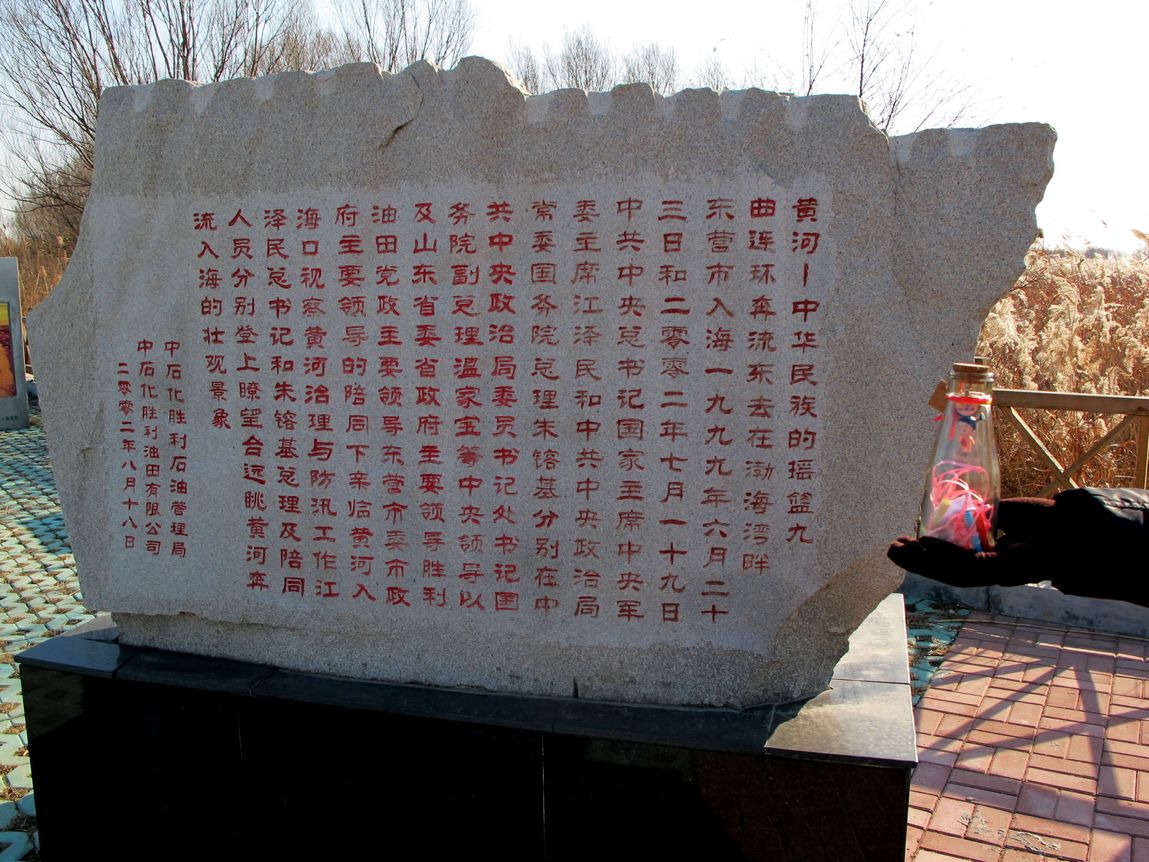 黄河—中华民族的摇篮九
曲连环奔流东去在渤海湾畔
东营市入海一九九九年六月二十
三日和二零零二年七月一十九日
中共中央总书记国家主席中央军
委主席江泽民和中共中央政治局
常委国务院总理朱镕基分别在中
共中央政治局委员书记处书记国
务院副总理温家宝等中央领导以
及山东省委省政府主要领导胜利
油田党政主要领导东营市委市政
府主要领导的陪同下亲临黄河入
海口视察黄河治理与防汛工作江
泽民总书记和朱镕基总理及陪同
人员分别登上瞭望台远眺黄河奔
流入海的壮观景象
中石化胜利石油管理局
中石化胜利油田有限公司
二零零二年八月十八日